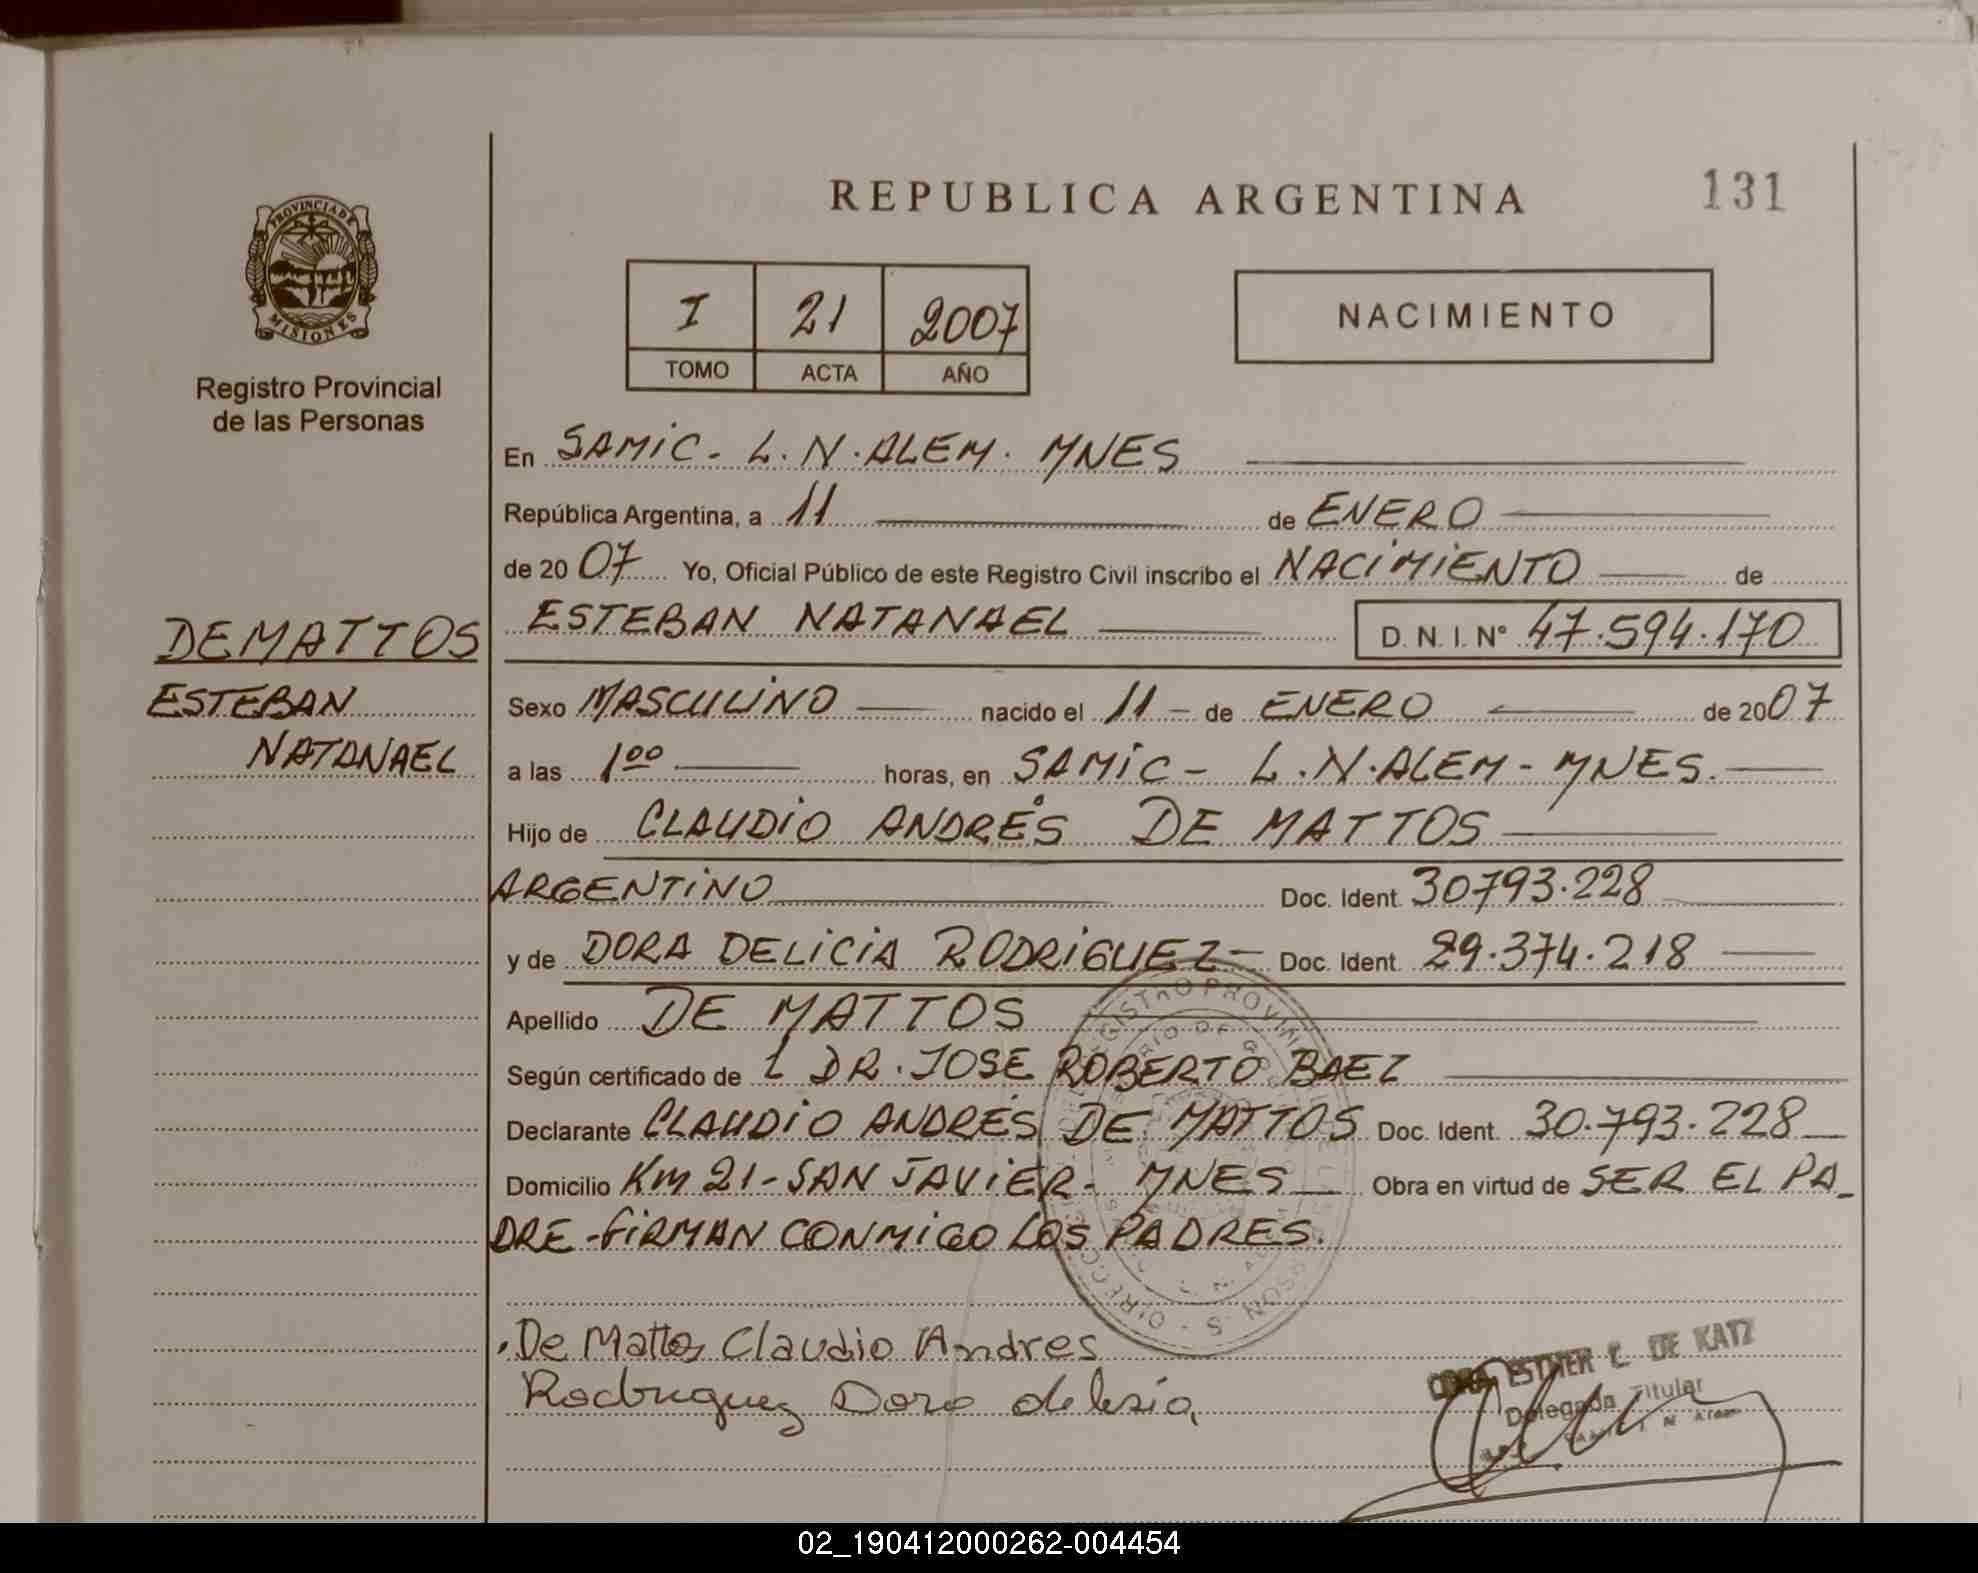 REPUBLICA ARGENTINA
131
PROVINCIA DE MISIONES
Registro Provincial
de las Personas
I 21 2007
TOMO ACTA AÑO
NACIMIENTO
En SAMIC - L.N.ALEM. MNES
República Argentina, a 11 de ENERO
de 2007 Yo, Oficial Público de este Registro Civil inscribo el NACIMIENTO de
ESTEBAN NATANAEL D. N. I. N° 47.594.170
DE MATTOS
ESTEBAN
NATANAEL
Sexo MASCULINO nacido el 11 - de ENERO de 2007
a las 100 horas, en SAMIC - L.N.ALEM - MNES.
Hijo de CLAUDIO ANDRÉS DE MATTOS
ARGENTINO Doc. Ident. 30793.228
y de DORA DELICIA RODRIGUEZ - Doc. Ident. 29.374.218
Apellido DE MATTOS
Según certificado de L DR. JOSE ROBERTO BAEZ
Declarante CLAUDIO ANDRÉS DE MATTOS Doc. Ident. 30.793.228
Domicilio Km 21 - SAN JAVIER - MNES Obra en virtud de SER EL PA_
DRE - FIRMAN CONMIGO LOS PADRES.
De Mattos Claudio Andres
Rodriguez Dora
ESTHER C. DE KATZ
Delegada Titular
02_190412000262-004454